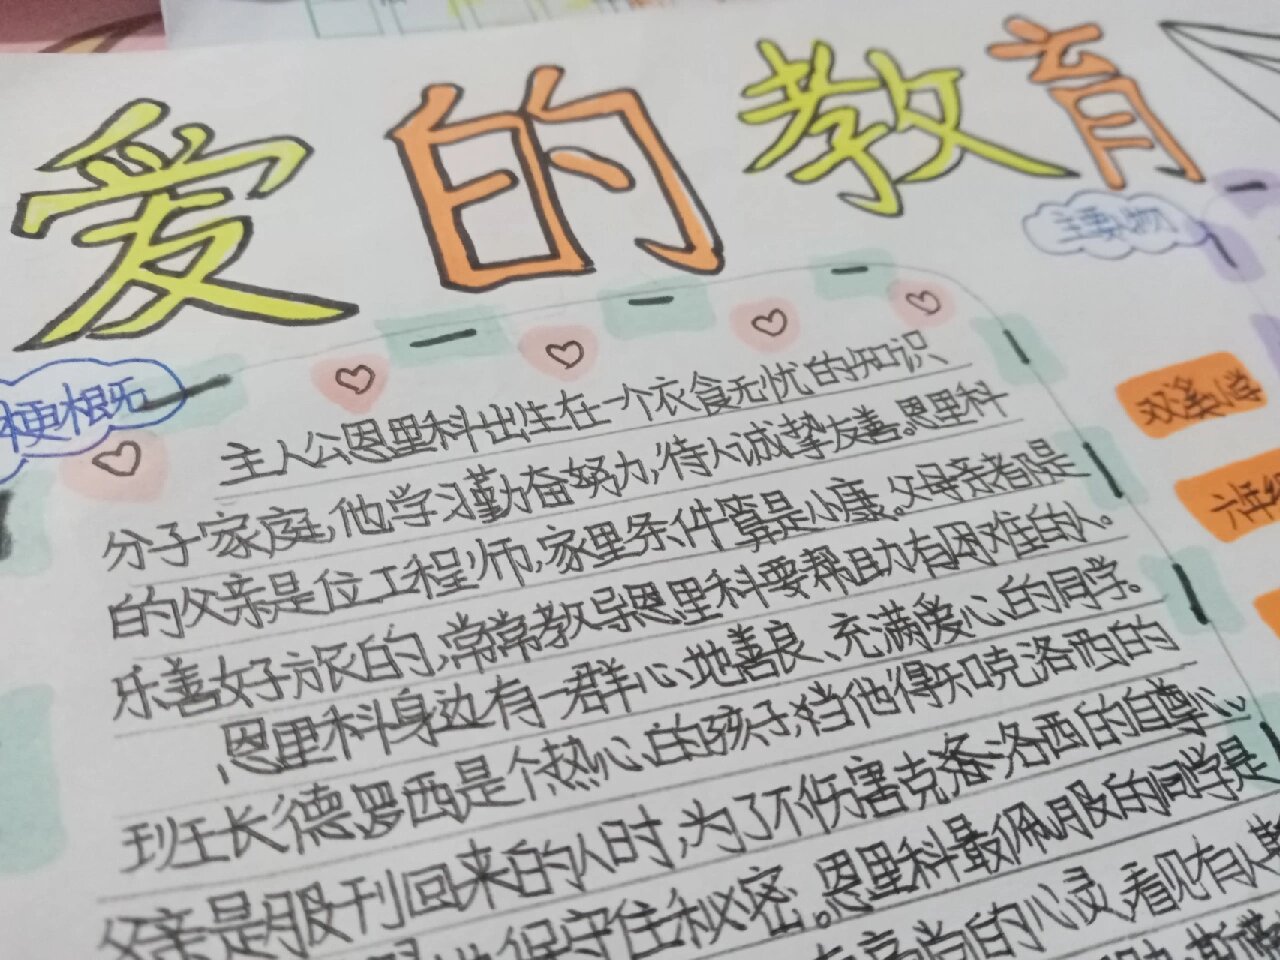 爱的教育
主要人物
梗概
双溪小学
主人公恩里科出生在一个衣食无忧的知识
分子家庭,他学习勤奋努力,待人诚挚友善。恩里科
的父亲是位工程师,家里条件算是小康。父母亲都是
乐善好施的,常常教导恩里科要帮助有困难的人。
恩里科身边有一群心地善良、充满爱心的同学。
班长德罗西是个热心的孩子,当他得知克洛西的
父亲是服刑回来的人时,为了不伤害克洛西的自尊心
保守住秘密。恩里科最佩服的同学是
高尚的心灵,看见有人